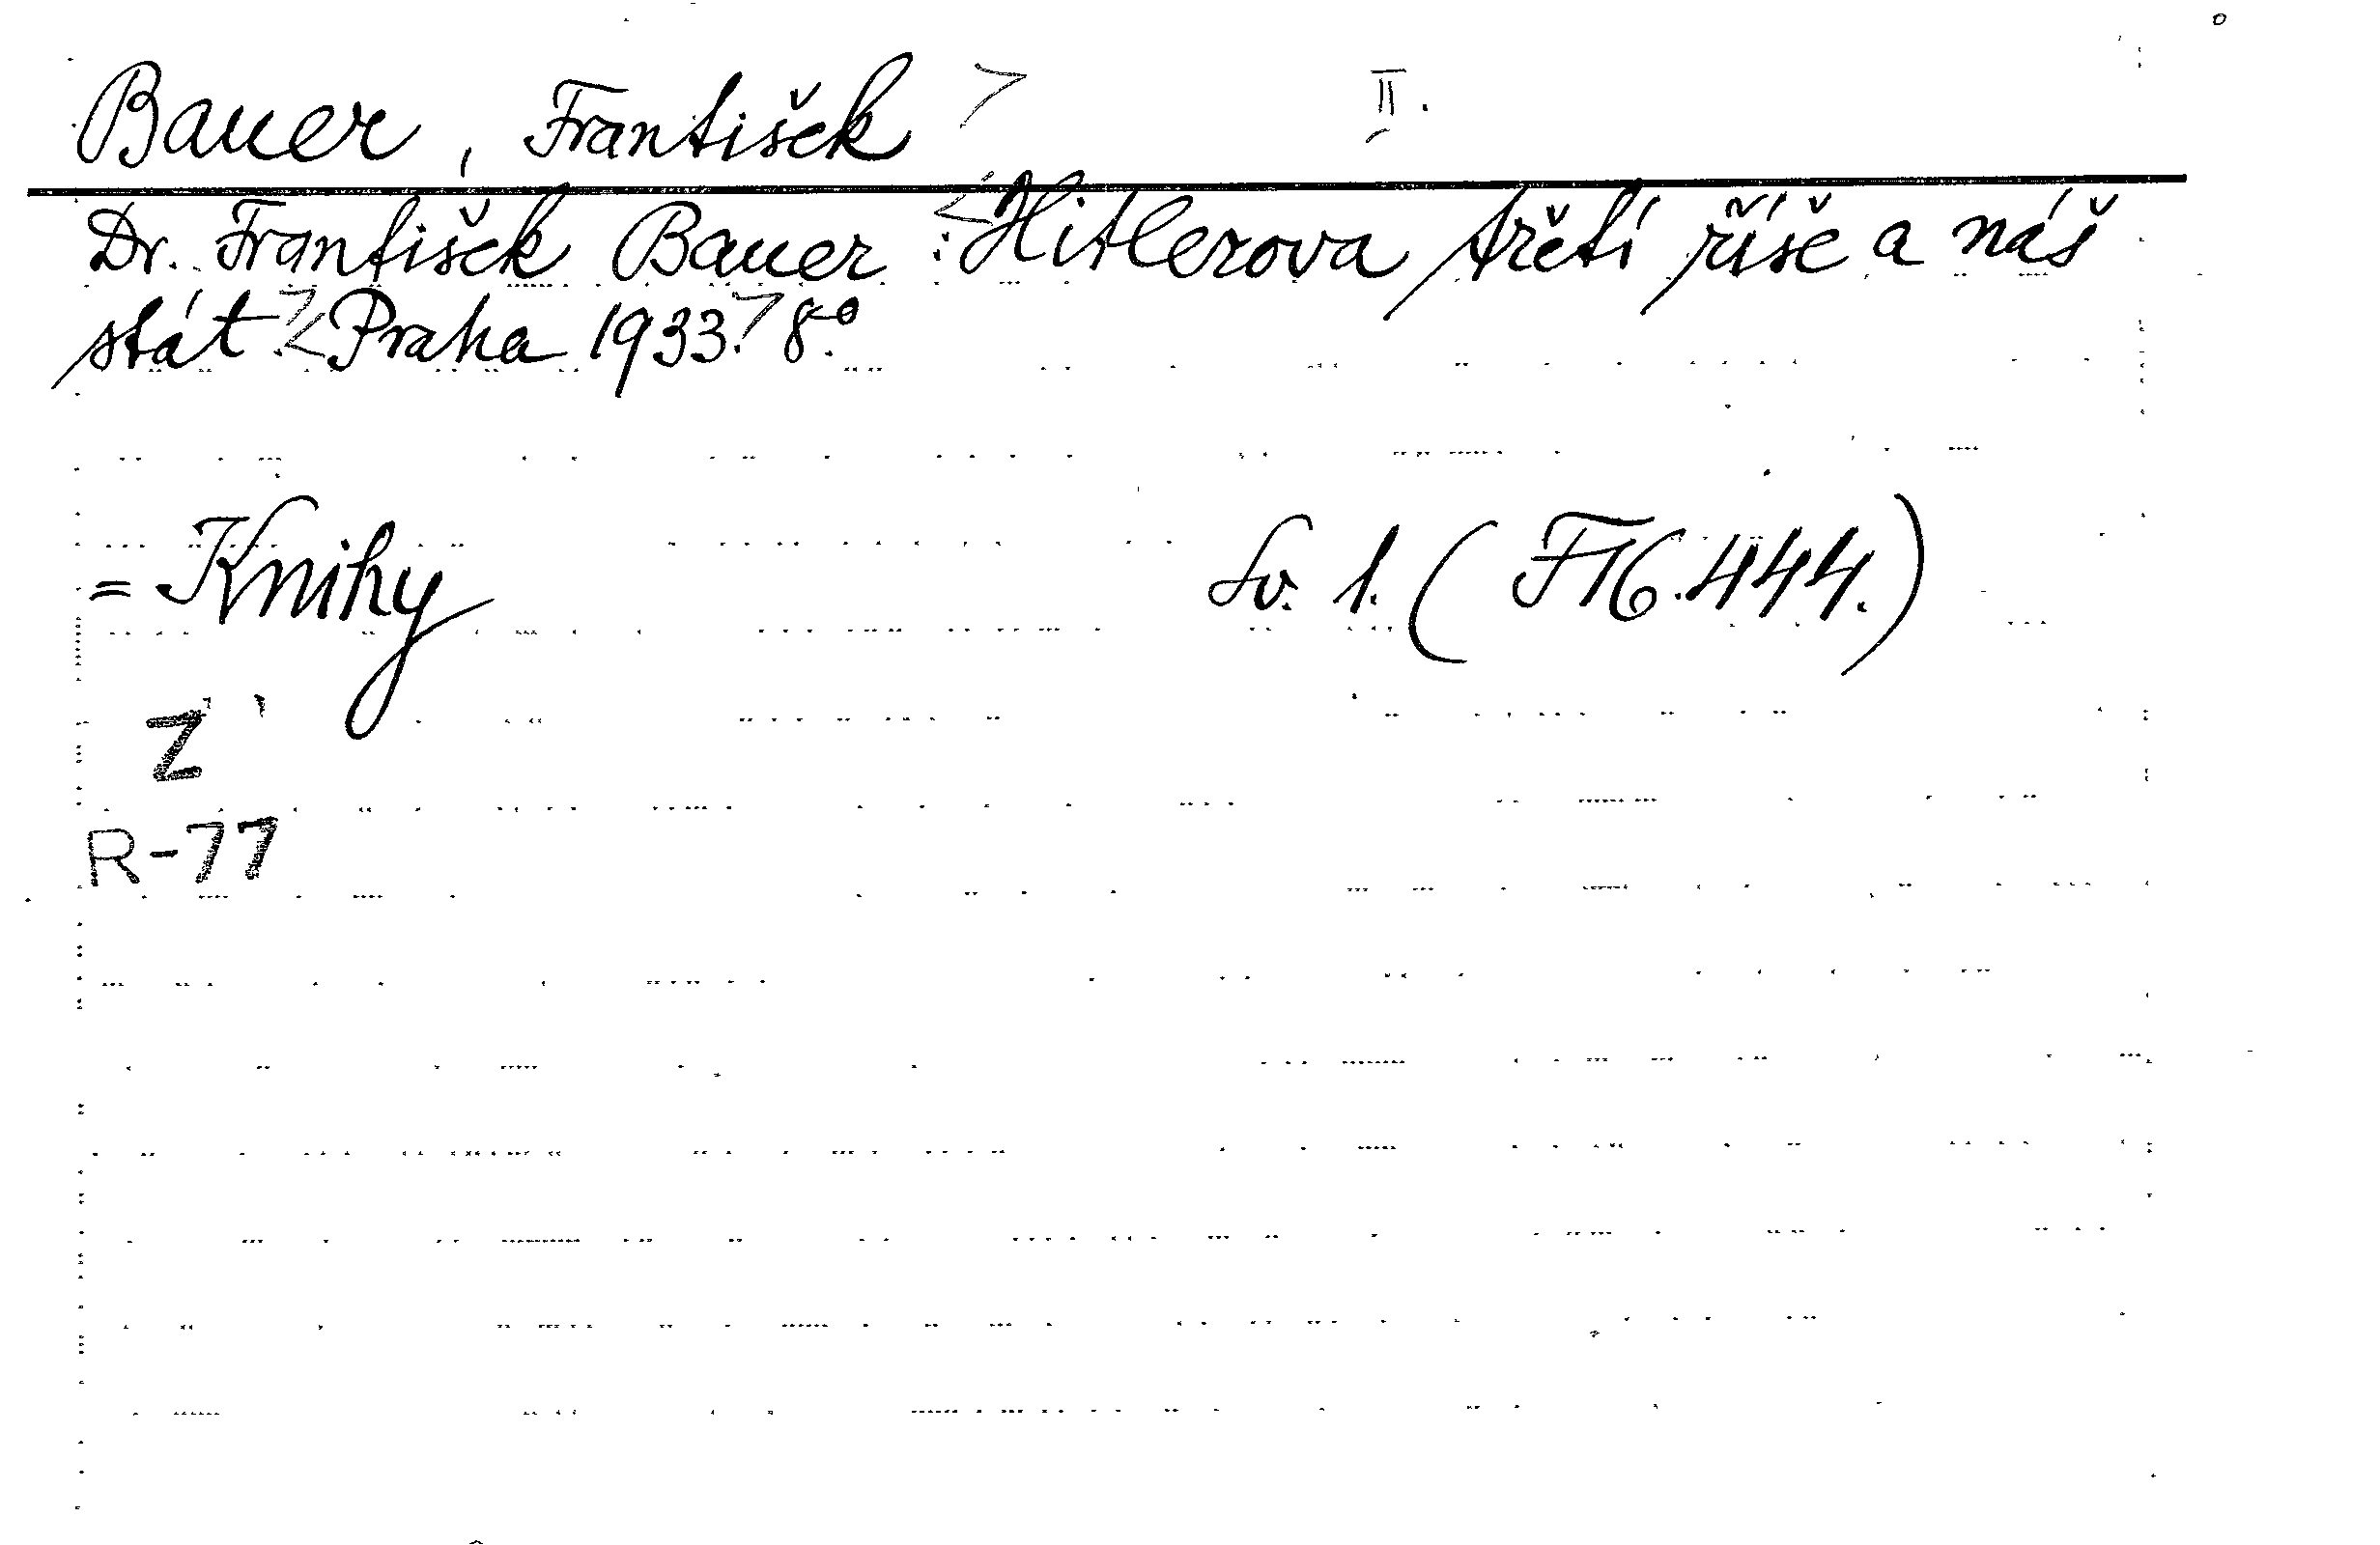 Bauer, František > II.
Dr. František Bauer : <Hitlerova třetí říše a náš
stát.> <Praha 1933.> 8°.
= Knihy Sv. 1. (F16.444.)
Z
R-77